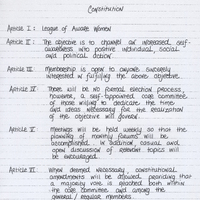 Constitution
Article I : League of Aware Women
Article II : The objective is to channel an increased self-
awareness into positive individual, social
and political action.
Article III : Membership is open to anyone sincerely
interested in fulfilling the above objective.
Article IV There will be no formal election process.
However, a self-appointed core committee
of those willing to dedicate the time
and ideas necessary for the realization
of the objective will govern.
Article V Meetings will be held weekly so that the
planning of monthly forums will be
accomplished. In addition, casual and
open discussion of relevant topics will
be encouraged.
Article VI When deemed necessary, constitutional
amendments will be allowed providing that
a majority vote is reached both within
the core committee and among the
general / regular members.